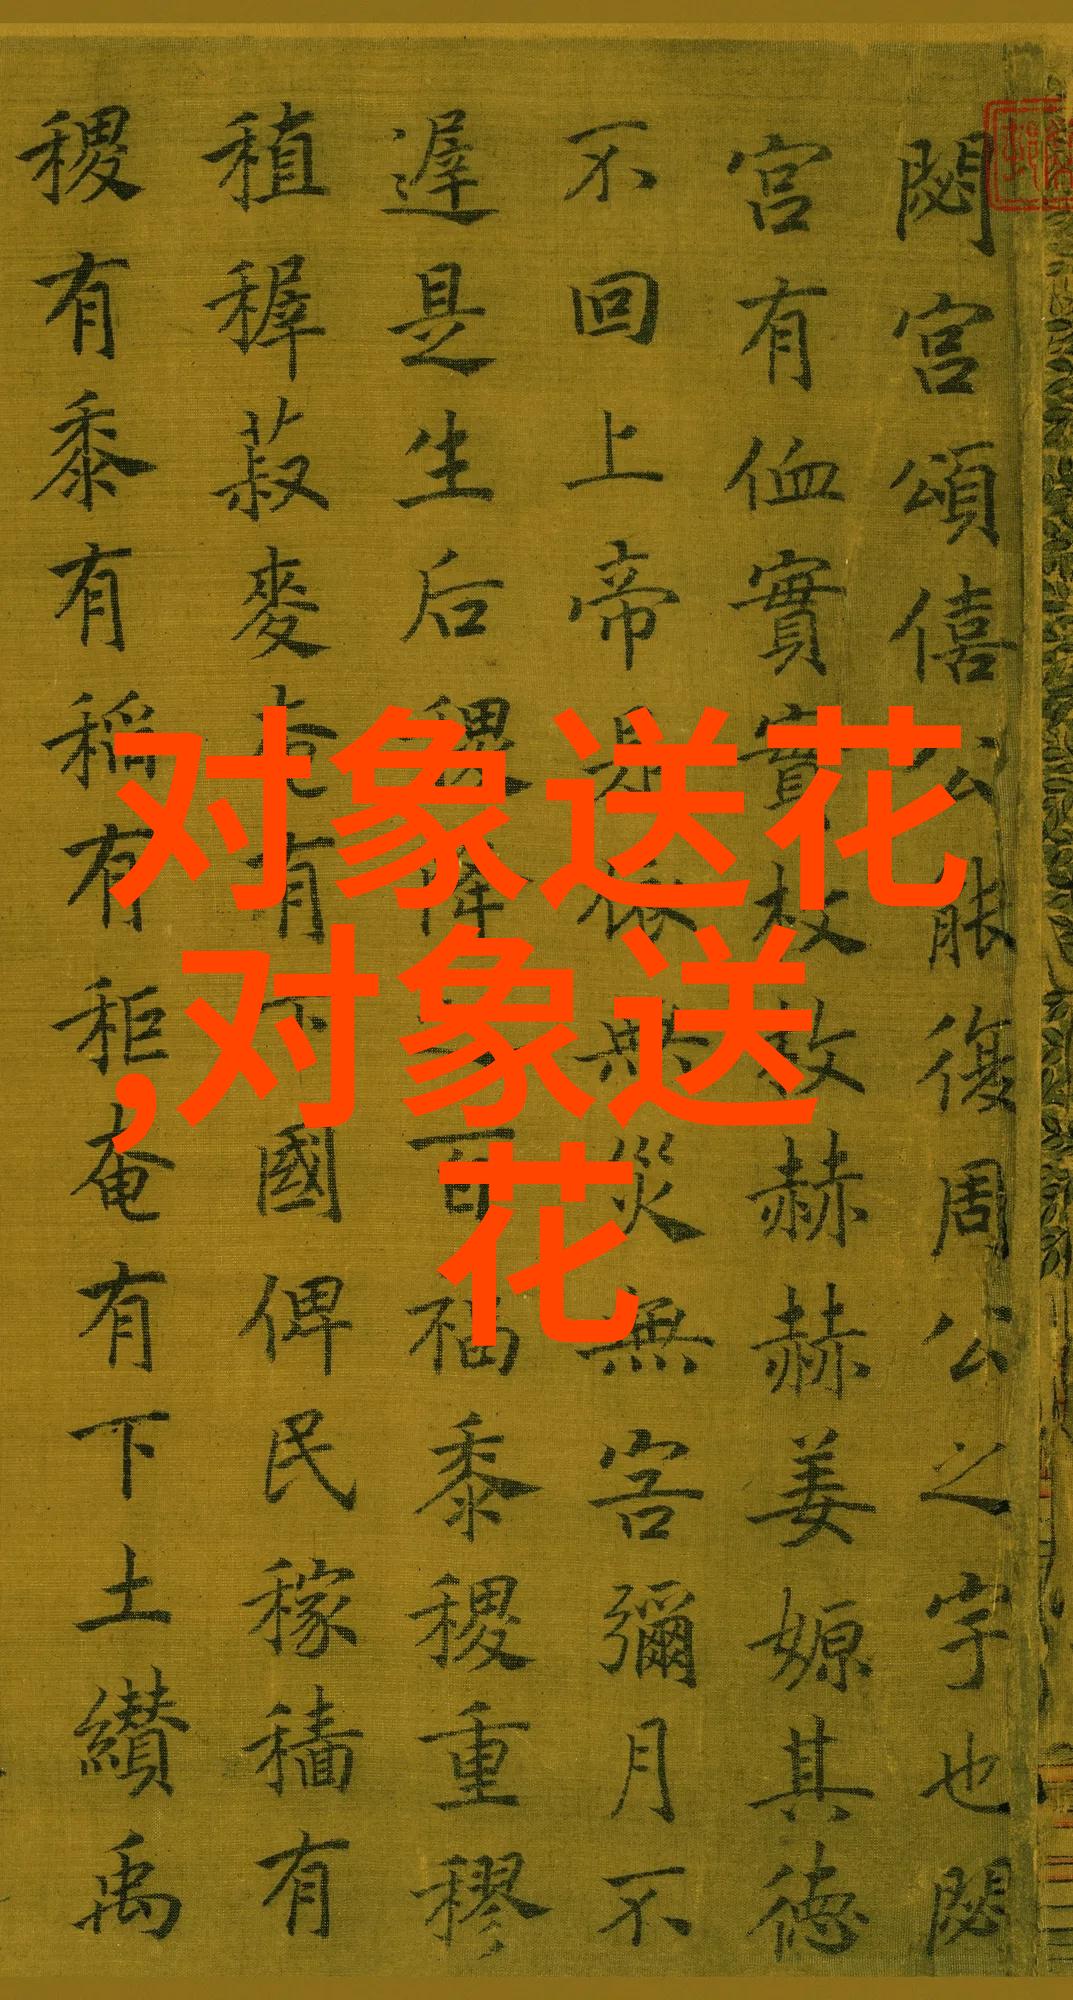 閟宮頌僖公能復周公之宇也閟
宮有侐實實枚枚赫赫姜嫄其德
不回上帝是依無災無害彌月不
遲是生后稷降之百福黍稷重穋
稙稺菽麥奄有下國俾民稼穡有
稷有黍有稻有秬奄有下土纘禹
对象送花
,对象送
花